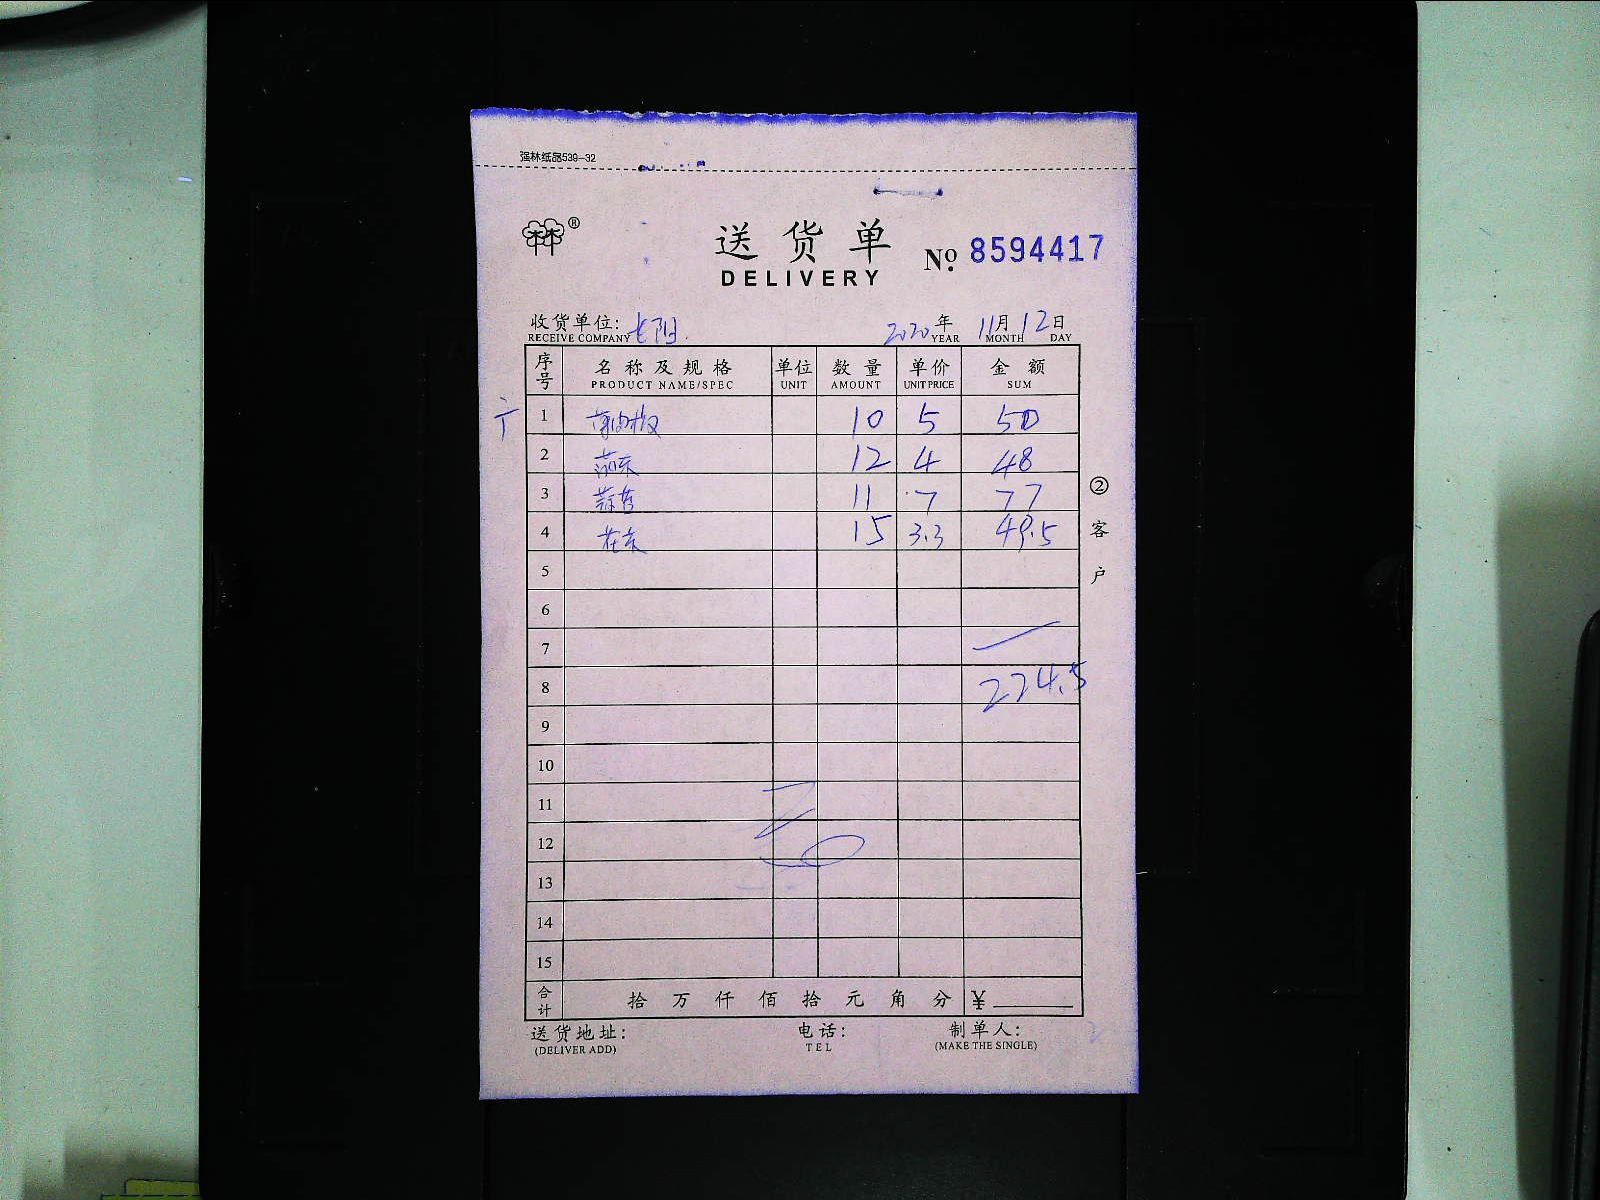 强林纸品539-32
林林®
送货单
DELIVERY
No. 8594417
收货单位: 七阳. 2020年 11月 12日
RECEIVE COMPANY YEAR MONTH DAY
序号 名称及规格 单位 数量 单价 金额
PRODUCT NAME/SPEC UNIT AMOUNT UNIT PRICE SUM
1 10 5 50
2 12 4 48
3 11 7 77
4 15 3.3 49.5
5
6
7
8 224.5
9
10
11
12
13
14
15
合计 拾 万 仟 佰 拾 元 角 分 ¥
②客户
送货地址: 电话: 制单人:
(DELIVER ADD) TEL (MAKE THE SINGLE)